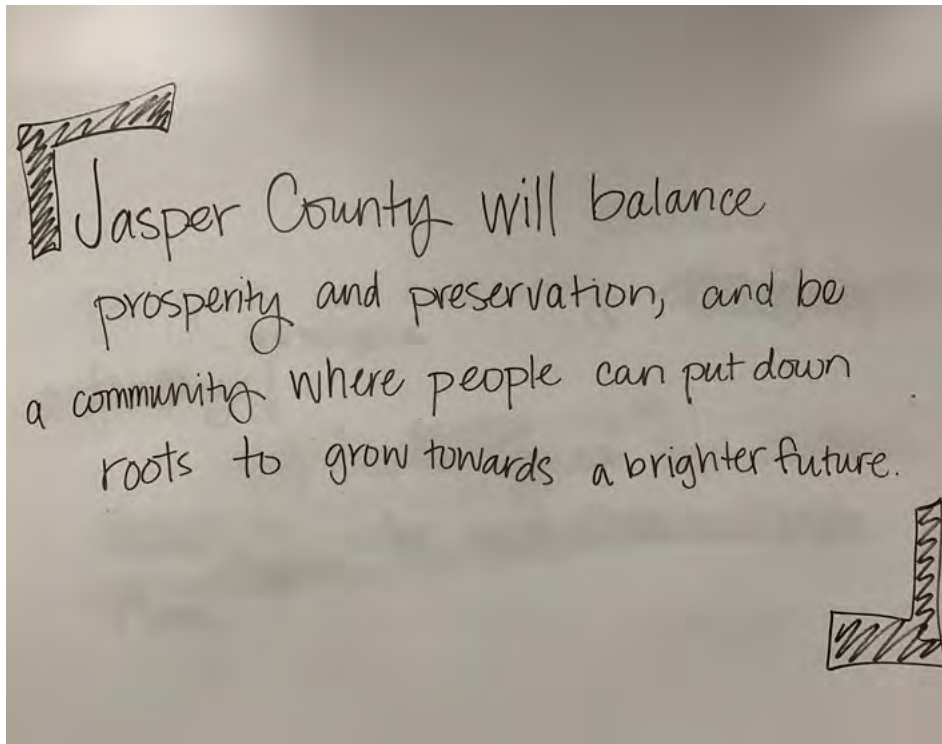 Jasper County will balance
prosperity and preservation, and be
a community where people can put down
roots to grow towards a brighter future.